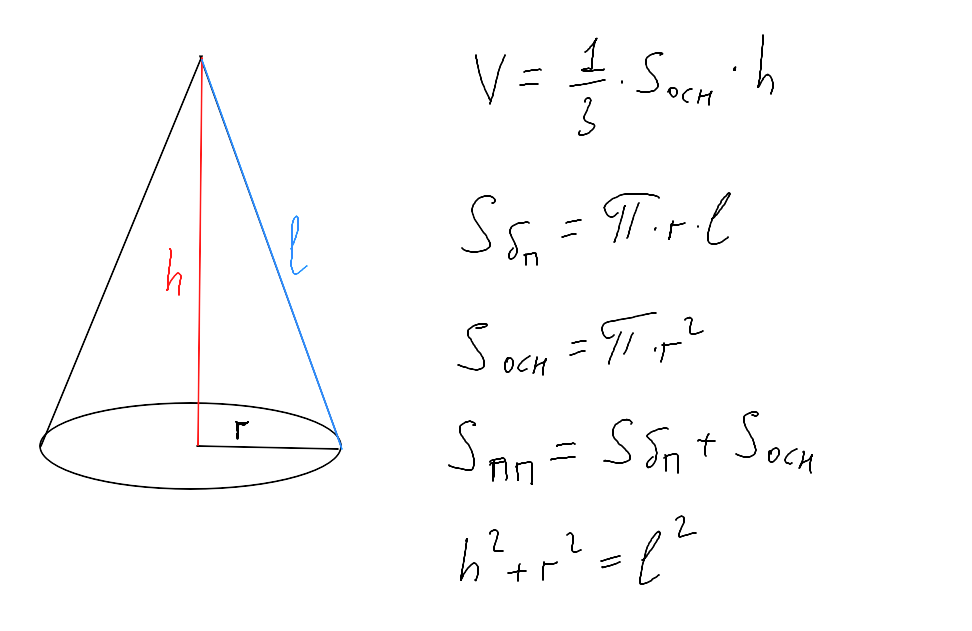 V = 1/3 · Sосн · h
Sбп = π · r · l
h
l
Sосн = π · r²
r
Sпп = Sбп + Sосн
h² + r² = l²